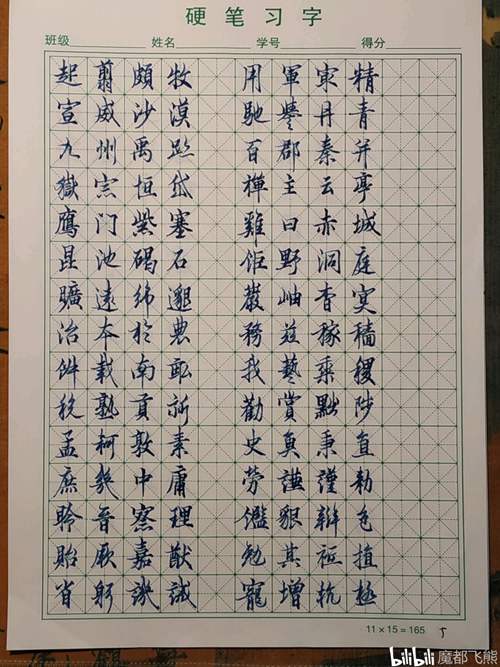 硬笔习字
班级 姓名 学号 得分
起翦頗牧 用軍最精
宣威沙漠 馳譽丹青
九州禹跡 百郡秦并
嶽宗恒岱 禪主云亭
鴈門紫塞 雞田赤城
昆池碣石 鉅野洞庭
曠遠綿邈 巖岫杳冥
治本於農 務茲稼穡
俶載南畝 我藝黍稷
稅熟貢新 勸賞黜陟
孟軻敦素 史魚秉直
庶幾中庸 勞謙謹勅
聆音察理 鑑貌辯色
貽厥嘉猷 勉其祗植
省躬譏誡 寵增抗極
11×15=165 5
bilibili 魔都飞熊